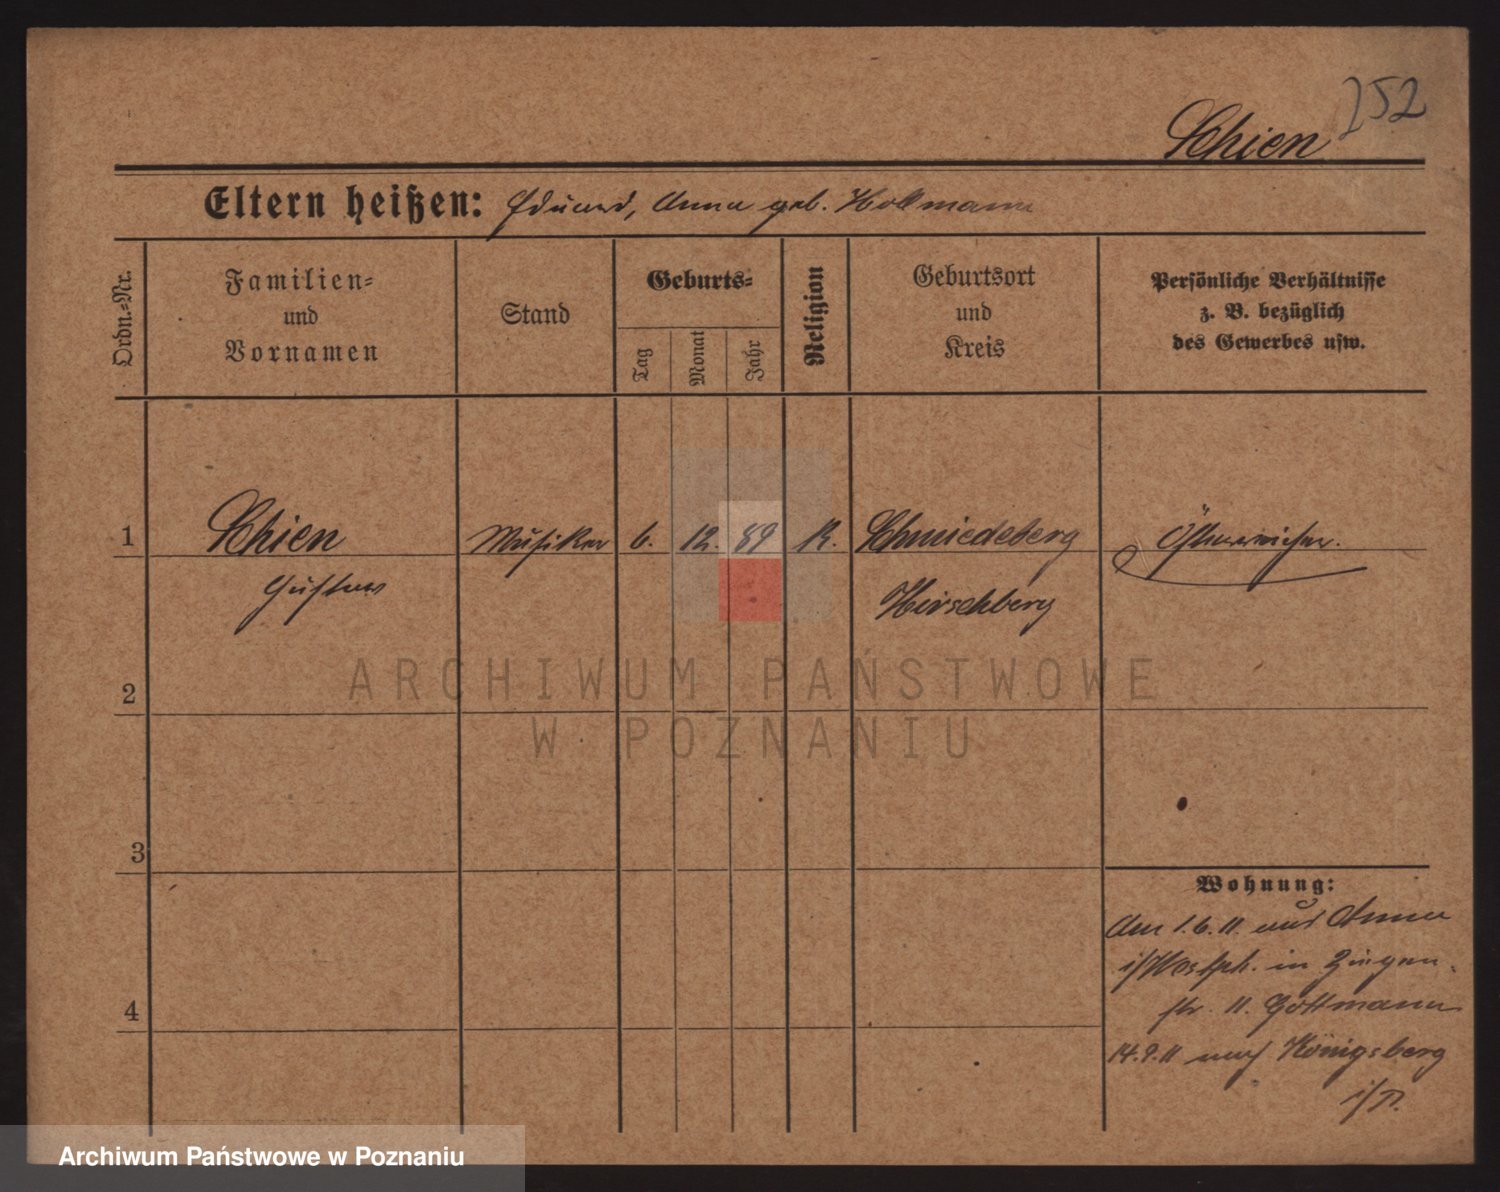 252
Schien
Eltern heißen: Eduard, Anna geb. Hollmann
Ordn.-Nr.
Familien-
und
Vornamen
Stand
Geburts-
Tag
Monat
Jahr
Religion
Geburtsort
und
Kreis
Persönliche Verhältnisse
z. B. bezüglich
des Gewerbes usw.
1 Schien Musiker 6. 12. 89 K. Schmiedeberg Österreicher.
Gustav Hirschberg
2
3
4
Wohnung:
Am 1.6.11. aus
i/Westph. in
str. 11.
14.9.11 nach Königsberg
i/P.
ARCHIWUM PAŃSTWOWE
W POZNANIU
Archiwum Państwowe w Poznaniu